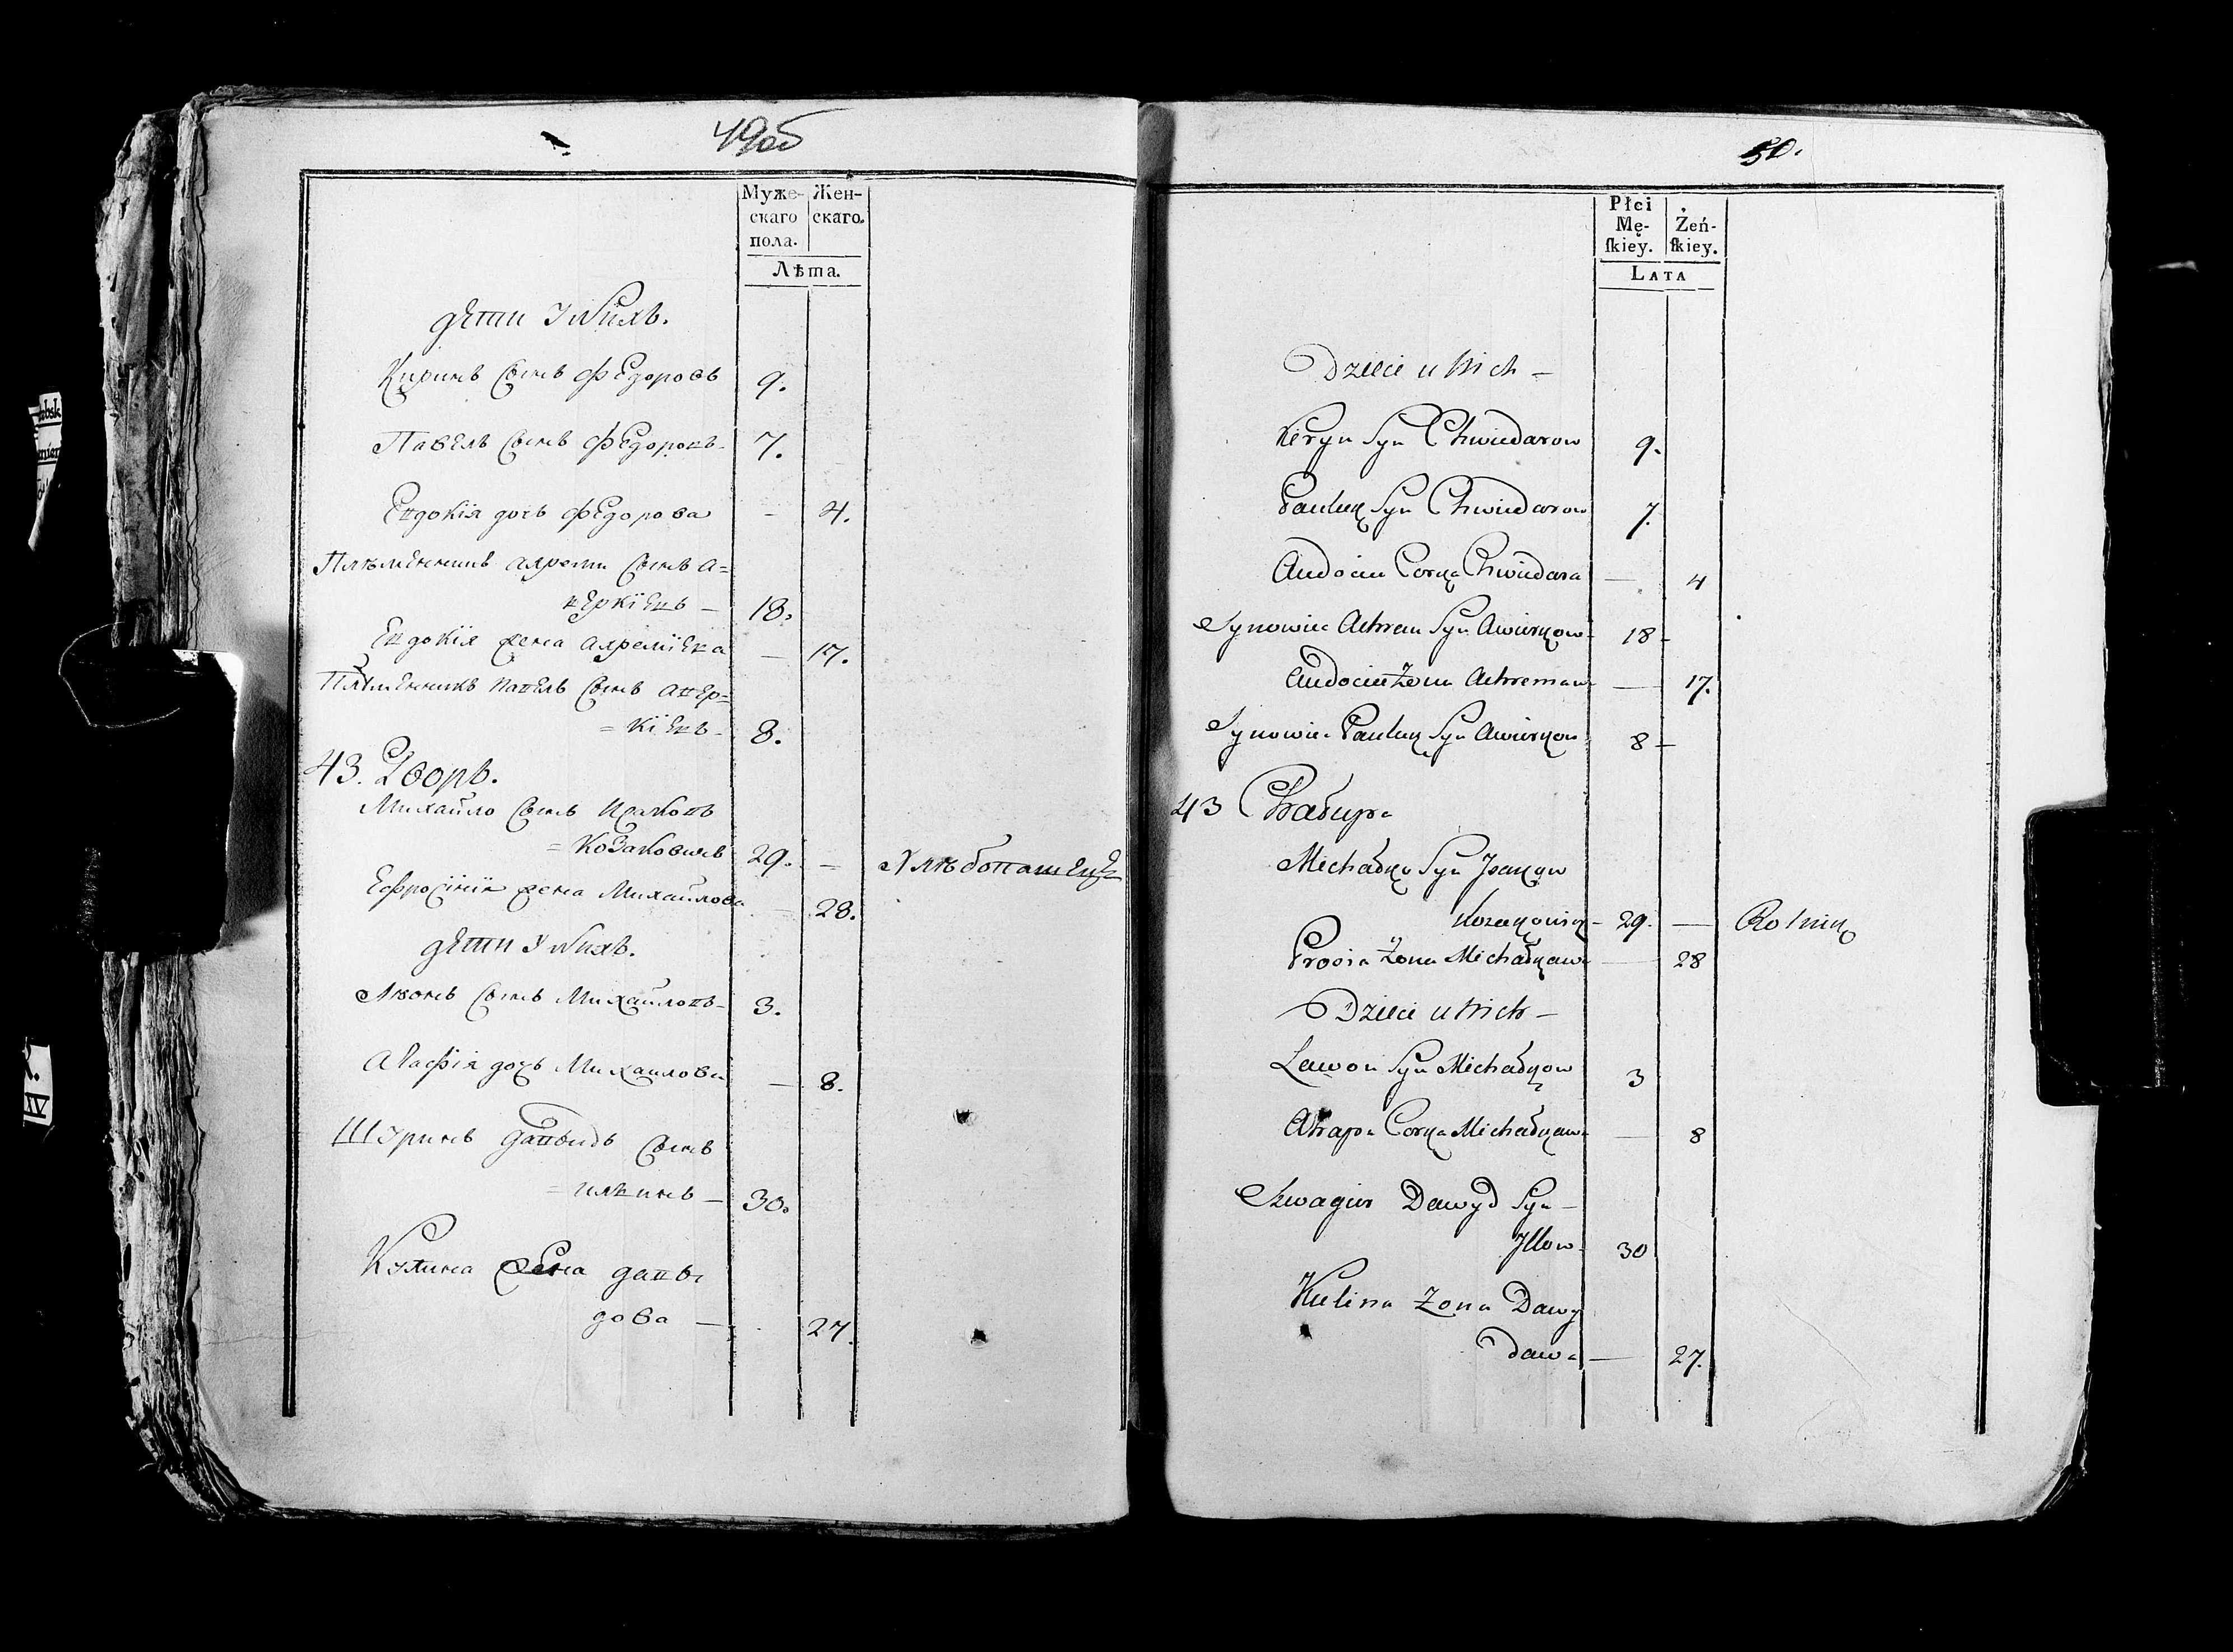 49об
Муже-
скаго
пола.
Жен-
скаго.
Лѣта.
дети У Нихъ.
Кирикъ Сынъ Федоровъ 9.
Павелъ Сынъ Федоровъ 7.
Евдокія дочь Федорова - 4.
Племенникъ Сынъ А=
веркіевъ — 18.
Евдокія жена — 17.
Племенникъ Павелъ Сынъ Авер=
=кіевъ 8.
43. Дворъ.
Михайло Сынъ Исаковъ
= Козаковичъ 29. — Хлѣбопашецъ
Ефросинія жена Михайлова — 28.
дети У Нихъ.
Сынъ Михайловъ 3.
Агафія дочь Михайлова — 8.
Шуринъ Давыдъ Сынъ
— 30.
Кулина жена Давы
дова — 27.
50.
Płci
Mę-
skiey.
Żeń-
skiey.
LATA
Dzieci u Nich —
Kiryn Syn Chwiedarow 9.
Pauluk Syn Chwiedarow 7.
Audocia Corka Chwiedara — 4
Synowiec Achrem Syn Awierkow 18 -
Audocia Żona Achremaw — 17.
Synowiec Pauluk Syn Awierkow 8 -
43 Chałupa
Michałko Syn Jsakow
Kozakowicz — 29. — Rolnik
Prosia Żona Michałkawa — 28
Dzieci u Nich —
Lawon Syn Michałkow 3
Ahapa Corka Michałkawa — 8
Szwagier Dawyd Syn —
Jllow 30
Kulina Żona Dawy
dawa — 27.